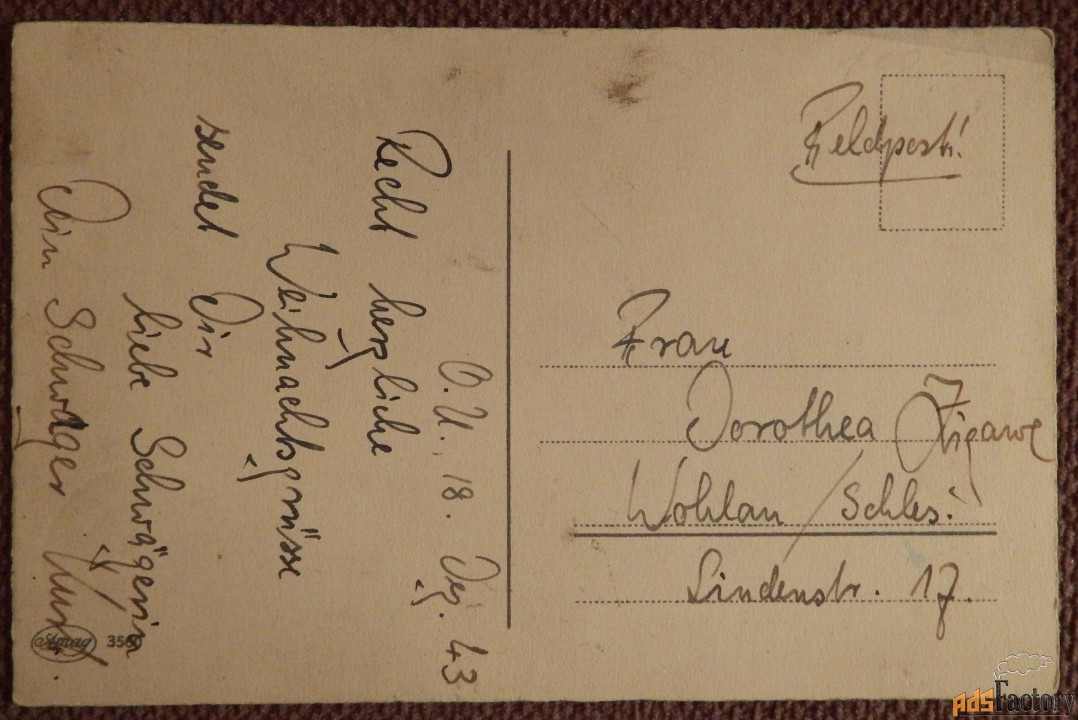 O.U., 18. Dez. 43
Recht herzliche
Weihnachtsgrüsse
sendet Dir
liebe Schwägerin
Dein Schwager Kurt.
Feldpost!
Frau
Dorothea
Wohlau / Schles.
Lindenstr. 17.
Amag 3560
AdsFactory